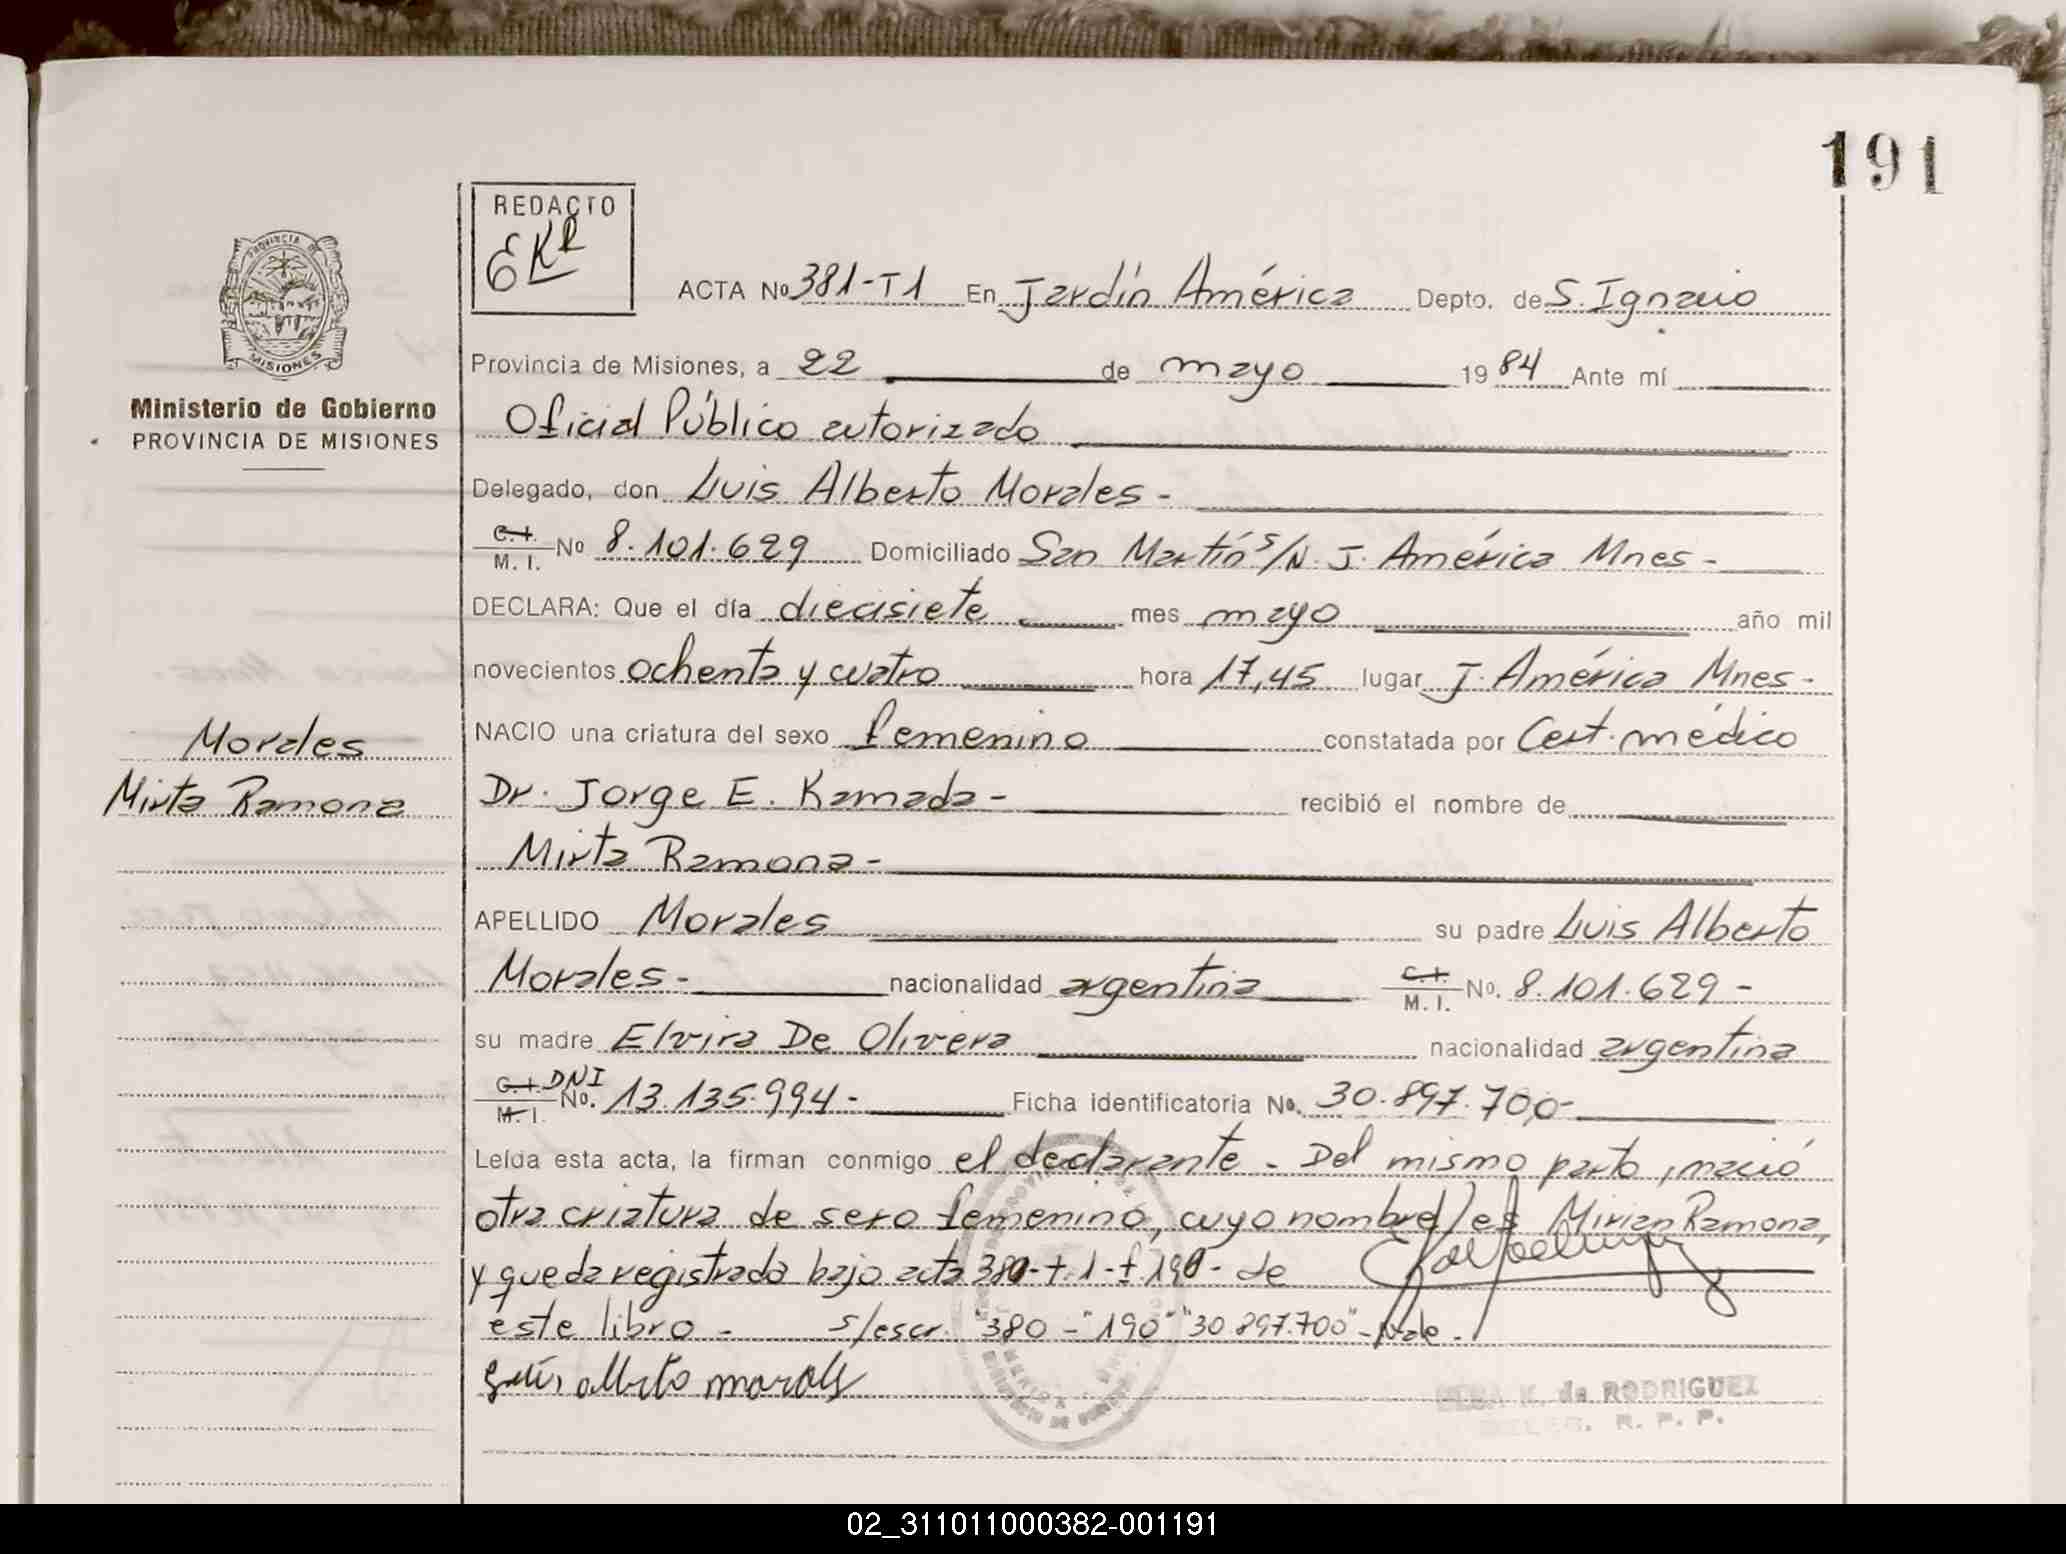 191
REDACTO
EKR
PROVINCIA DE
MISIONES
Ministerio de Gobierno
PROVINCIA DE MISIONES
ACTA Nº 381-T1 En Jardín América Depto. de S. Ignacio
Provincia de Misiones, a 22 de mayo 1984 Ante mí
Oficial Público autorizado
Delegado, don Luis Alberto Morales -
C.I. M. I. Nº 8.101.629 Domiciliado San Martín s/N. J. América Mnes -
DECLARA: Que el día diecisiete mes mayo año mil
novecientos ochenta y cuatro hora 17,45 lugar J. América Mnes -
NACIO una criatura del sexo femenino constatada por Cert. médico
Dr. Jorge E. Kamada - recibió el nombre de
Mirta Ramona -
APELLIDO Morales su padre Luis Alberto
Morales - nacionalidad argentina C.I. M. I. Nº. 8.101.629 -
su madre Elvira De Olivera nacionalidad argentina
C.I. M. I. DNI Nº. 13.135.994 - Ficha identificatoria Nº. 30.897.700 -
Leída esta acta, la firman conmigo el declarante - Del mismo parto, nació
otra criatura de sexo femenino, cuyo nombre es Mirian Ramona,
y queda registrada bajo acta 380-t.1-f.190- de
este libro - s/escr. "380 - "190" "30.897.700" - Vale -
Luis alberto morales
K. de RODRIGUEZ
R. P. P.
Morales
Mirta Ramona
02_311011000382-001191